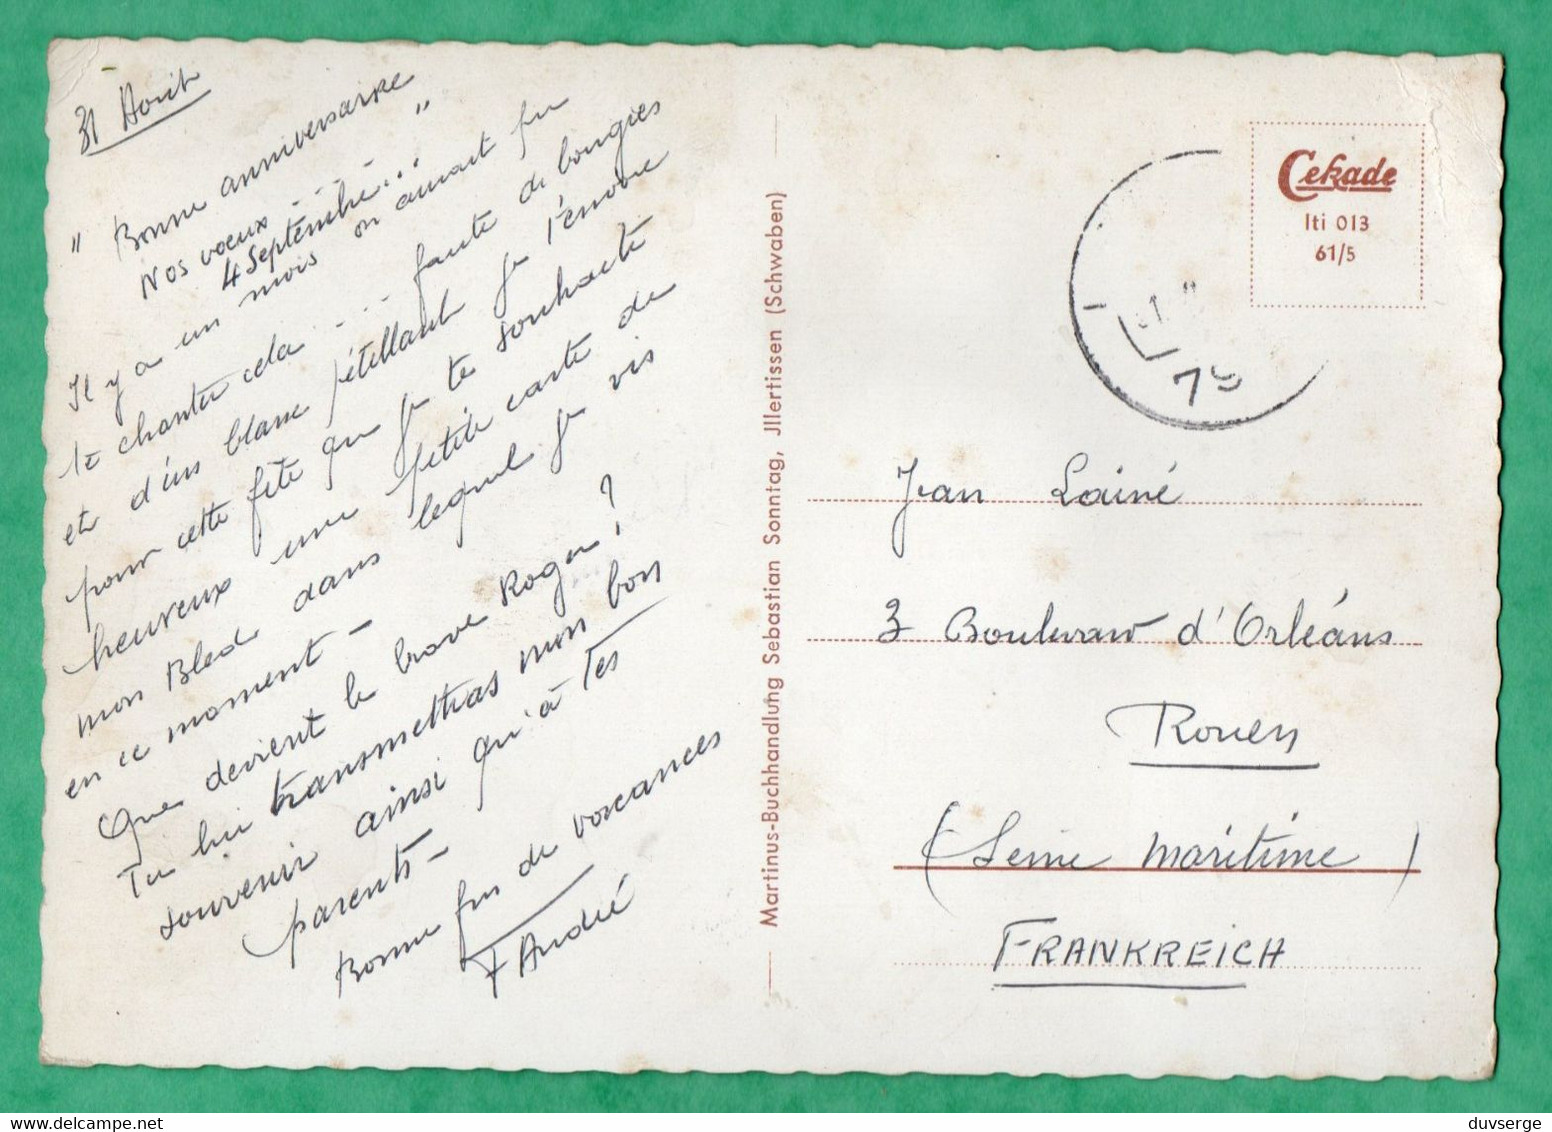 31 Août
" Bonne anniversaire "
Nos vœux - - -
4 Septembre...
Il y a un mois on aurait pu
te chanter cela . . . faute de bougies
et d'un blanc pétillant je t'envoie
pour cette fête que je te souhaite
heureux une petite carte de
mon Bled dans lequel je vis
en ce moment -
Que devient le brave Roger ?
Tu lui transmettras mon bon
souvenir ainsi qu'à Tes
parents -
Bonne fin de vacances
F André
Martinus-Buchhandlung Sebastian Sonntag, Jllertissen (Schwaben)
Cekade
Iti 013
61/5
Jean Lainé
3 Boulevard d'Orléans
Rouen
(Seine Maritime)
FRANKREICH
duvserge